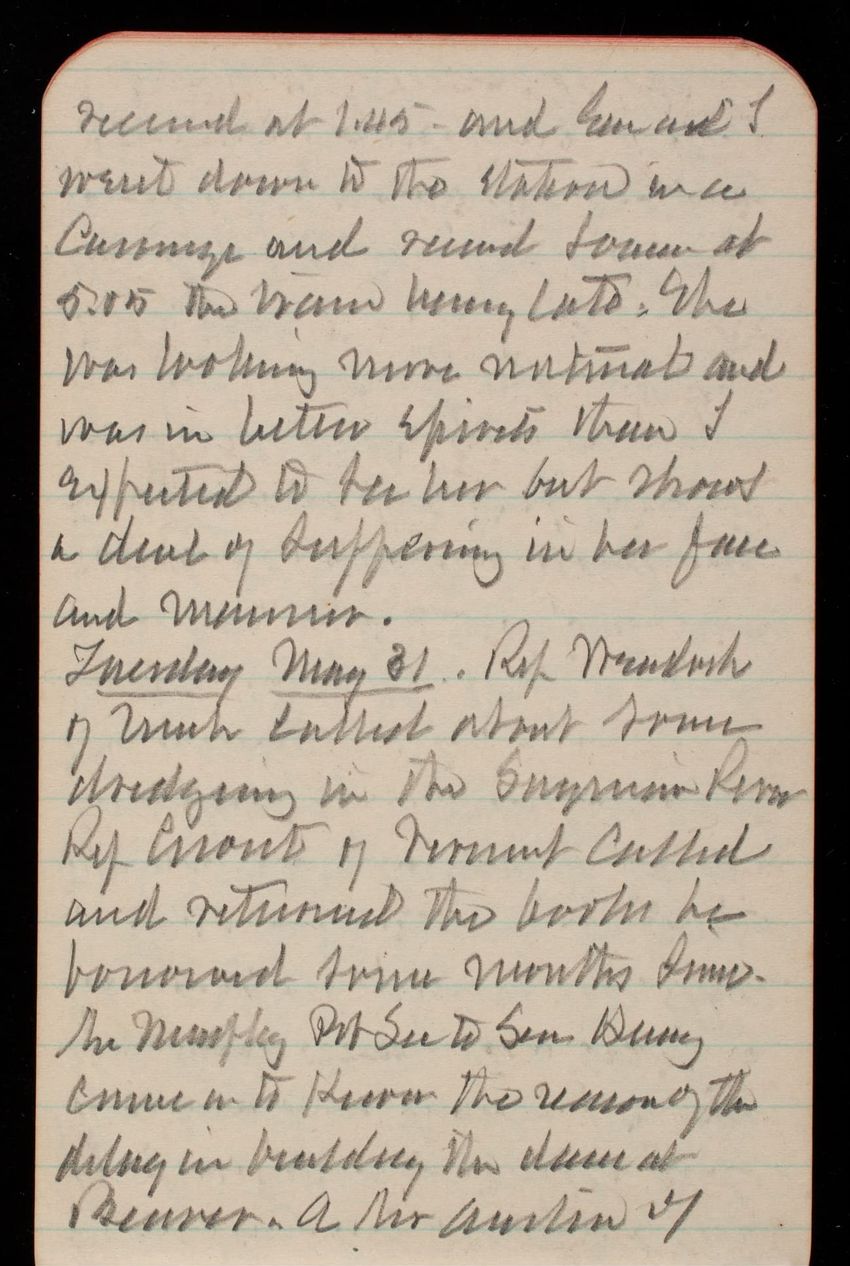 received at 1.45 - and Eva and I
went down to the station in a
Carriage and received at
5.05 the train being late. She
was looking more natural and
was in better spirits than I
expected to see her but shows
a deal of suffering in her face
and manner.
Tuesday May 31. Rep
of Mich called about some
dredging in the Saginaw River
Rep Grout of Vermont called
and returned the books he
borrowed some months since.
Mr Pvt Sec to Sen Quay
came in to know the reason of the
delay in building the dam at
Beaver. A Mr Austin of